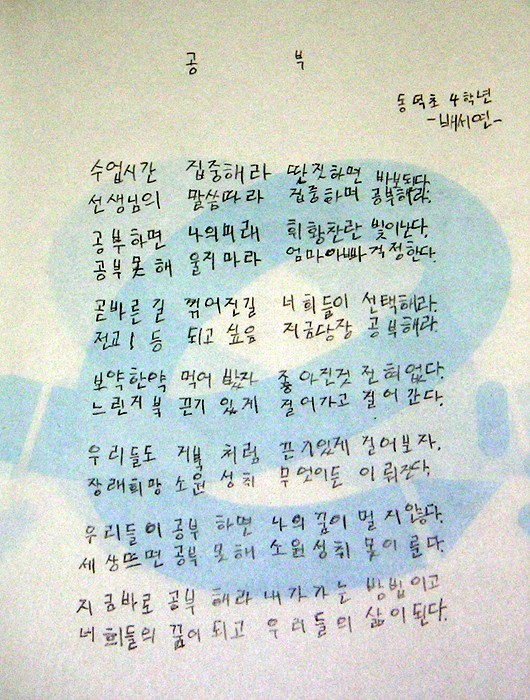 공 부
동덕초 4학년
-배시연-
수업시간 집중해라 딴짓하면 바보된다.
선생님의 말씀따라 집중하며 공부해라.
공부하면 나의미래 휘황찬란 빛이난다.
공부못해 울지마라 엄마아빠걱정한다.
곧바른길 꺾어진길 너희들이 선택해라.
전교1등 되고싶음 지금당장 공부해라.
보약한약 먹어봤자 좋아진것 전혀없다.
느린거북 끈기있게 걸어가고 걸어간다.
우리들도 거북처럼 끈기있게 걸어보자.
장래희망 소원성취 무엇이든 이뤄진다.
우리들이 공부하면 나의꿈이 멀지않다.
세상뜨면 공부못해 소원성취 못이룬다.
지금바로 공부해라 내가가는 방법이고
너희들의 꿈이되고 우리들의 삶이된다.